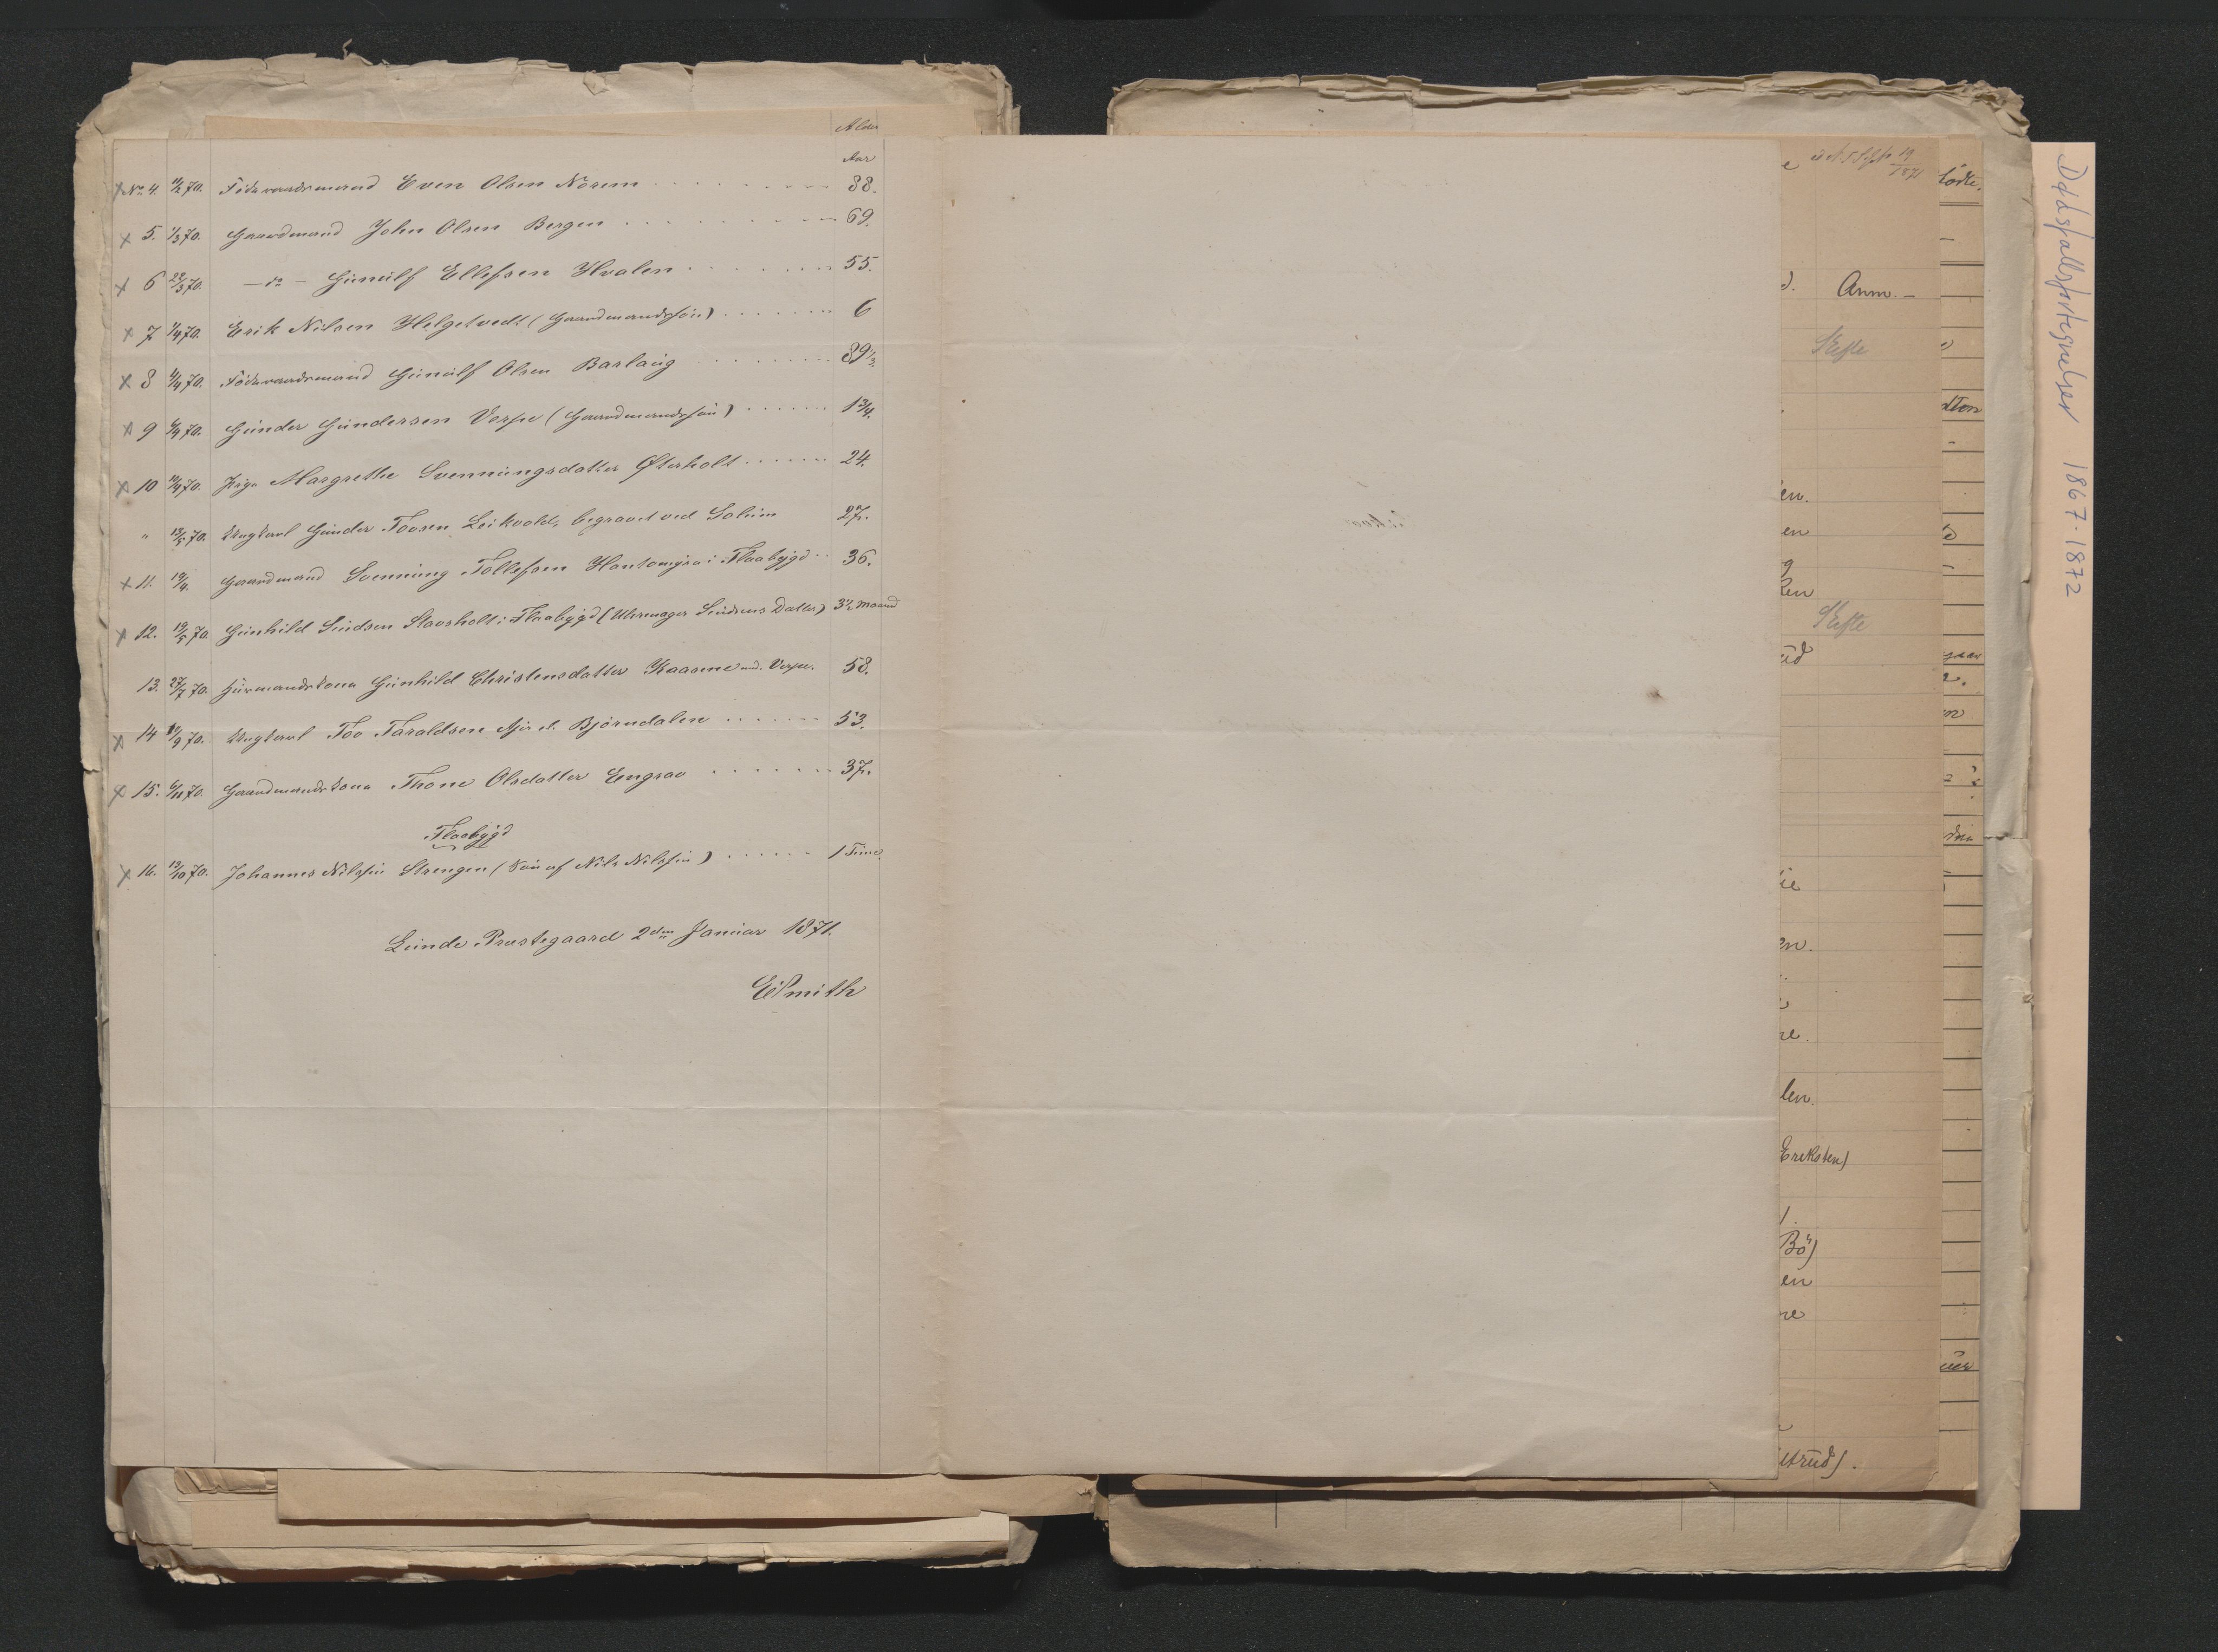 Alder
Aar
x No 4. 11/2 70. Föderaadsmand Even Olsen Norem 88.
x 5. 1/3 70. Gaardmand John Olsen Bergen 69.
x 6 22/3 70. — do — Gunülf Ellefsen Hvalen 55.
x 7 1/4 70. Erik Nilsen Helgetvedt (Gaardmandssön) 6
x 8 4/4 70. Föderaadsmand Gunülf Olsen Barlaüg 89 1/2.
x 9 6/4 70. Günder Gündersen Verpe (Gaardmandssön) 1 3/4.
x 10 11/4 70. Pige Margrethe Svennüngsdatter Østerholt 24.
" 13/5 70. Ungkarl Günder Tovsen Leikvold, begravet ved Solüm 27.
x 11. 19/4. Gaardmand Svennüng Tollefsen Hantomyra i Flaabygd 36.
x 12. 19/5 70. Günhild Sündsen Stavsholt i Flaabygd (Uhrmager Sündsens Datter) 3 1/2 Maaned
13. 27/7 70. Huusmandskone Günhild Christensdatter Kaasene und. Verpe. 58.
x 14 11/9 70. Ungkarl Tov Taraldsen Bjørndalen 53.
x 15. 6/11 70. Gaardmandskone Thone Olsdatter Engrav 37.
Flaabygd
x 16. 13/10 70. Johannes Nilssön Strengen (Sön af Nils Nilssön) 1 Time.
Lünde Præstegaard 2den Januar 1871.
E Smith
19/ 1871
Anm. —
Skifte
Skifte
en.
en
len.
Eriksten)
Bö)
en
Dødsfallsfortegnelser 1867-1872